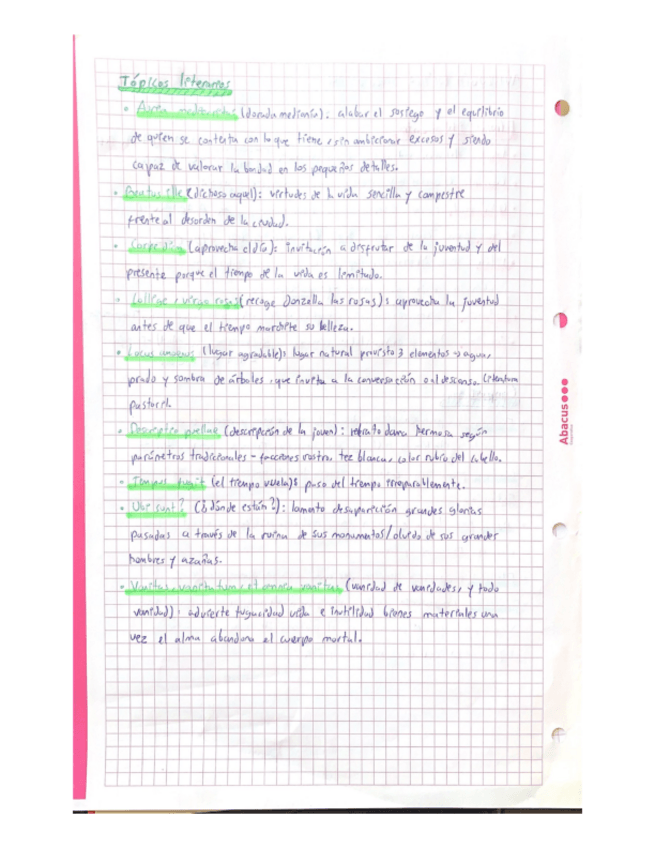 Tópicos literarios
• Aurea mediocritas (dorada medianía): alabar el sosiego y el equilibrio
de quien se contenta con lo que tiene, sin ambicionar excesos y siendo
capaz de valorar la bondad en los pequeños detalles.
• Beatus ille (dichoso aquel): virtudes de la vida sencilla y campestre
frente al desorden de la ciudad.
• Carpe diem (aprovecha el día): invitación a disfrutar de la juventud y del
presente porque el tiempo de la vida es limitado.
• Collige, virgo rosas (recoge donzella las rosas): aprovecha la juventud
antes de que el tiempo marchite su belleza.
• Locus amoenus (lugar agradable): lugar natural provisto 3 elementos → agua,
prado y sombra de árboles, que invita a la conversación o al descanso. Literatura
pastoril.
• Descriptio puellae (descripción de la joven): retrato dama hermosa según
parámetros tradicionales - facciones rostro, tez blanca, color rubio del cabello.
• Tempus fugit (el tiempo vuela): paso del tiempo irreparablemente.
• Ubi sunt? (¿dónde están?): lamento desaparición grandes glorias
pasadas a través de la ruina de sus monumentos/olvido de sus grandes
hombres y azañas.
• Vanitas vanitatum, et omnia vanitas (vanidad de vanidades, y todo
vanidad): advierte fugacidad vida e inutilidad bienes materiales una
vez el alma abandona el cuerpo mortal.
Abacus